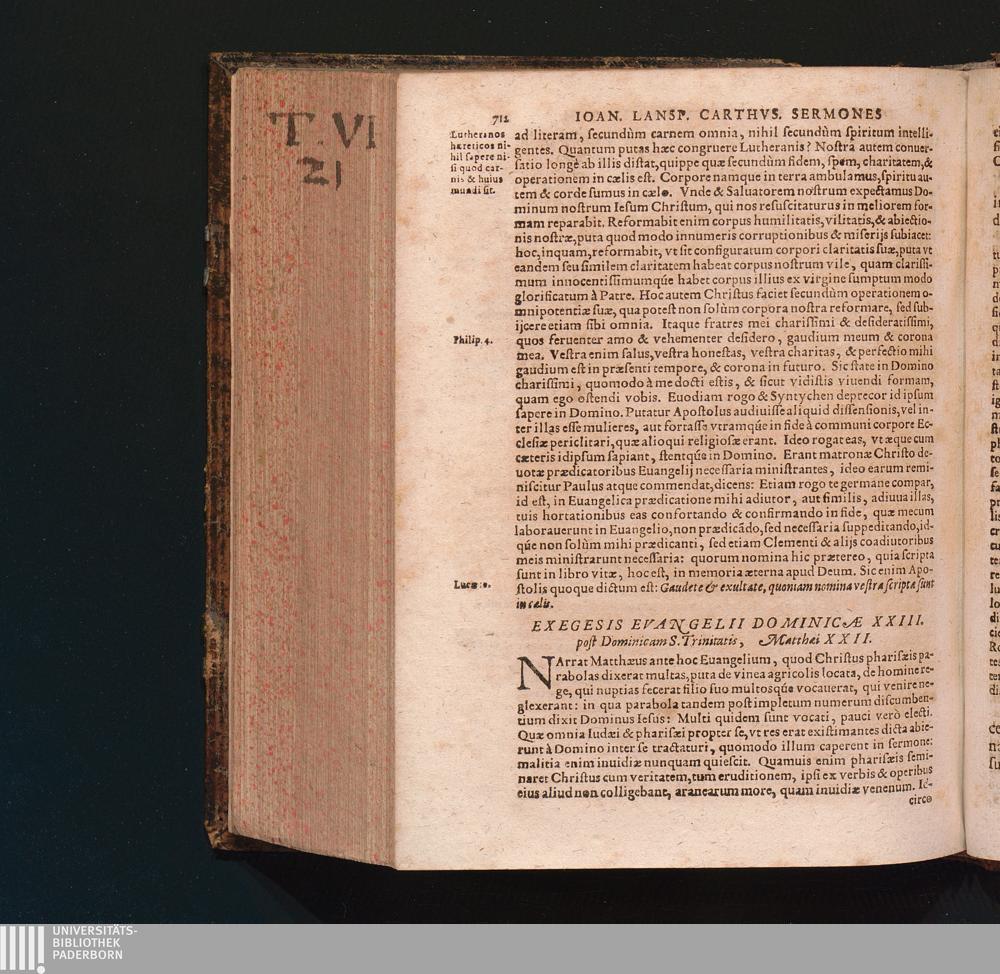 T. VI
21
712 IOAN. LANSP. CARTHVS. SERMONES
Lutheranos
hæreticos ni-
hil sapere ni-
si quod car-
nis & huius
mundi sit.
ad literam, secundùm carnem omnia, nihil secundùm spiritum intelli-
gentes. Quantum putas hæc congruere Lutheranis? Nostra autem conuer-
satio longè ab illis distat, quippe quæ secundùm fidem, spem, charitatem, &
operationem in cælis est. Corpore namque in terra ambulamus, spiritu au-
tem & corde sumus in cælo. Vnde & Saluatorem nostrum expectamus Do-
minum nostrum Iesum Christum, qui nos resuscitaturus in meliorem for-
mam reparabit. Reformabit enim corpus humilitatis, vilitatis, & abiectio-
nis nostræ, puta quod modo innumeris corruptionibus & miserijs subiacet:
hoc, inquam, reformabit, vt sit configuratum corpori claritatis suæ, puta vt
eandem seu similem claritatem habeat corpus nostrum vile, quam clarissi-
mum innocentissimumq́ue habet corpus illius ex virgine sumptum modo
glorificatum à Patre. Hoc autem Christus faciet secundùm operationem o-
mnipotentiæ suæ, qua potest non solùm corpora nostra reformare, sed sub-
ijcere etiam sibi omnia. Itaque fratres mei charissimi & desideratissimi,
Philip. 4.
quos feruenter amo & vehementer desidero, gaudium meum & corona
mea. Vestra enim salus, vestra honestas, vestra charitas, & perfectio mihi
gaudium est in præsenti tempore, & corona in futuro. Sic state in Domino
charissimi, quomodo à me docti estis, & sicut vidistis viuendi formam,
quam ego ostendi vobis. Euodiam rogo & Syntychen deprecor id ipsum
sapere in Domino. Putatur Apostolus audiuisse aliquid dissensionis, vel in-
ter illas esse mulieres, aut fortasse vtramq́ue in fide à communi corpore Ec-
clesiæ periclitari, quæ alioqui religiosæ erant. Ideo rogat eas, vt æque cum
cæteris idipsum sapiant, stentq́ue in Domino. Erant matronæ Christo de-
uotæ prædicatoribus Euangelij necessaria ministrantes, ideo earum remi-
niscitur Paulus atque commendat, dicens: Etiam rogo te germane compar,
id est, in Euangelica prædicatione mihi adiutor, aut similis, adiuua illas,
tuis hortationibus eas confortando & confirmando in fide, quæ mecum
laborauerunt in Euangelio, non prædicãdo, sed necessaria suppeditando, id-
q́ue non solùm mihi prædicanti, sed etiam Clementi & alijs coadiutoribus
meis ministrarunt necessaria: quorum nomina hic prætereo, quia scripta
sunt in libro vitæ, hoc est, in memoria æterna apud Deum. Sic enim Apo-
Lucæ
stolis quoque dictum est: Gaudete & exultate, quoniam nomina vestra scripta sunt
in cælis.
EXEGESIS EVANGELII DOMINICÆ XXIII.
post Dominicam S. Trinitatis, Matthæi XXII.
NArrat Matthæus ante hoc Euangelium, quod Christus pharisæis pa-
rabolas dixerat multas, puta de vinea agricolis locata, de homine re-
ge, qui nuptias fecerat filio suo multosq́ue vocauerat, qui venire ne-
glexerant: in qua parabola tandem post impletum numerum discumben-
tium dixit Dominus Iesus: Multi quidem sunt vocati, pauci verò electi.
Quæ omnia Iudæi & pharisæi propter se, vt res erat existimantes dicta abie-
runt à Domino inter se tractaturi, quomodo illum caperent in sermone:
malitia enim inuidiæ nunquam quiescit. Quamuis enim pharisæis semi-
naret Christus cum veritatem, tum eruditionem, ipsi ex verbis & operibus
eius aliud non colligebant, aranearum more, quam inuidiæ venenum. Id-
circo
UNIVERSITÄTS-
BIBLIOTHEK
PADERBORN